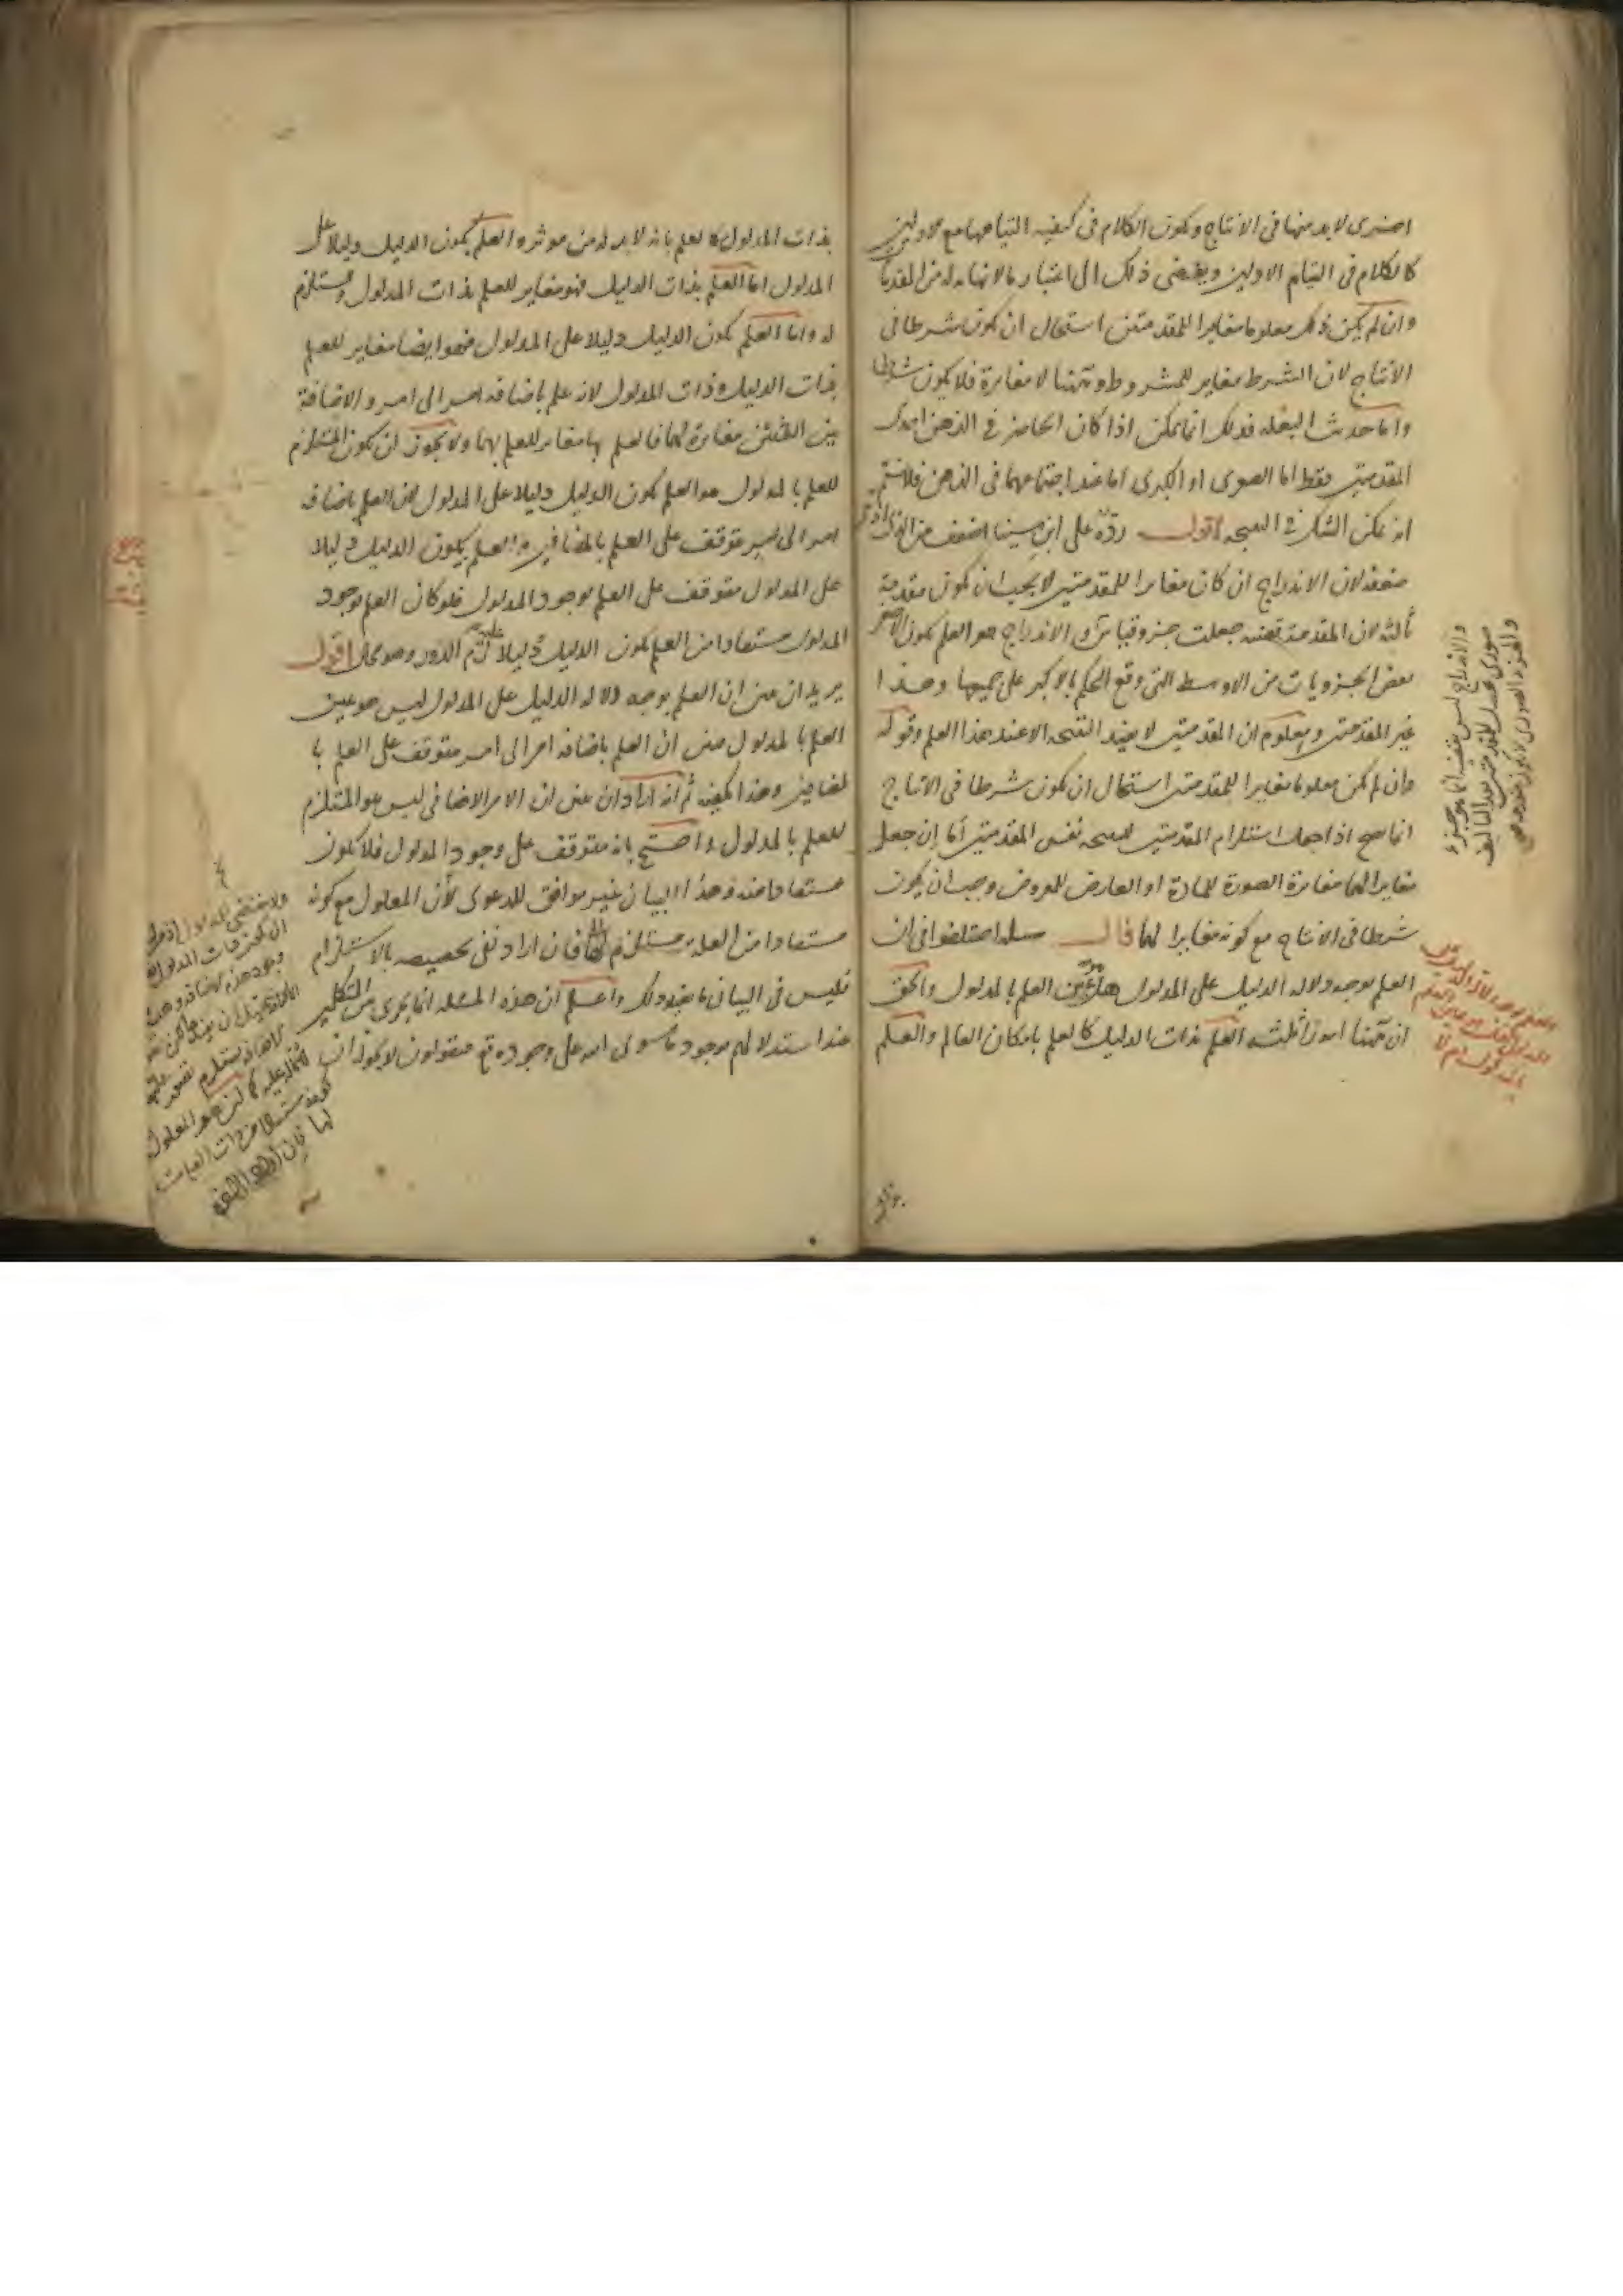 اخرى لا بد منها فى الانتاج ويكون الكلام فى كيفيه التيامها مع الاولين
كالكلام فى التيام الاولين ويفضى ذلك الى اعتبار ما لا نهايه له من المقدمات
وان لم يكن ذلك معلوما مغايرا للمقدمتين استحال ان يكون شرطا فى
الانتاج لان الشرط مغاير للمشروط وههنا لا مغايرة فلا يكون شرطا
واما حديث البغله فذلك انما يمكن اذا كان الحاضر فى الذهن احدى
المقدمتين فقط اما الصغرى او الكبرى اما عند اجتماعهما فى الذهن فلا نسلم
انه يمكن الشك فى النتيجه اقول ردّه على ابن سينا اضعف من
ضعفه لان الاندراج ان كان مغايرا للمقدمتين لا يجب ان يكون مقدمة
ثالثه لان المقدمة قضيه جعلت جزو قياس والاندراج هو العلم بكون الاصغر
بعض الجزويات من الاوسط التى وقع الحكم بالاكبر على جميعها وهذا
غير المقدمتين ومعلوم ان المقدمتين لا تفيد النتيجه الا عند هذا العلم وقوله
وان لم يكن معلوما مغايرا للمقدمتين استحال ان يكون شرطا فى الانتاج
انما صح اذا جعلت استلزام المقدمتين للنتيجه نفس المقدمتين أما إن جعل
مغايرا لهما مغايرة الصورة للمادة او العارض للمعروض وجب ان يكون
شرطا فى الانتاج مع كونه مغايرا لهما قال مسله اختلفوا فى ان
العلم بوجه دلاله الدليل على المدلول هل هو عين العلم بالمدلول والحق
ان ههنا امورا ثلثه العلم بذات الدليل كالعلم بامكان العالم والعلم
والاندراج ليس بقضية انما هو جزء
صورى يحدث للمقدمتين بعد التاليف
والجزء الصورى لا يكون مقدمة
العلم بوجه دلالة الدليل
بالمدلول ام لا
بذات المدلول كالعلم بانه لا بد له من موثر والعلم بكون الدليل دليلا على
المدلول اما العلم بذات الدليل فهو مغاير للعلم بذات المدلول ومستلزم
له واما العلم بكون الدليل دليلا على المدلول فهو ايضا مغاير للعلم
بذات الدليل وذات المدلول لانه علم باضافه امر الى امر والاضافة
بين الشيئين مغايرة لهما فالعلم بها مغاير للعلم بهما ولا يجوز ان يكون المستلزم
للعلم بالمدلول هو العلم بكون الدليل دليلا على المدلول لان العلم باضافه
امر الى غير متوقف على العلم بالمضافين والعلم بكون الدليل دليلا
على المدلول متوقف على العلم بوجود المدلول فلو كان العلم بوجود
المدلول مستفادا من العلم بكون الدليل دليلا عليه لزم الدور وهو محال اقول
يريد ان يبين ان العلم بوجه دلاله الدليل على المدلول ليس هو عين
العلم بالمدلول فبين ان العلم باضافه امر الى امر متوقف على العلم با
لمضافين وهذا يكفيه ثم انه اراد ان يبين ان الامر الاضافى ليس هو المستلزم
للعلم بالمدلول واحتج بانه متوقف على وجود المدلول فلا يكون
مستفادا منه وهذا البيان غير موافق للدعوى لأن المعلول مع كونه
مستفادا من العله مستلزم لها فان اراد نفى تخصيصه بالاستلزام
فليس فى البيان ما يفيد ذلك واعلم ان هذه المسئله انما يجرى بين المتكلمين
عند استدلالهم بوجود ما سوى الله على وجوده تع فيقولون لا يجوز ان